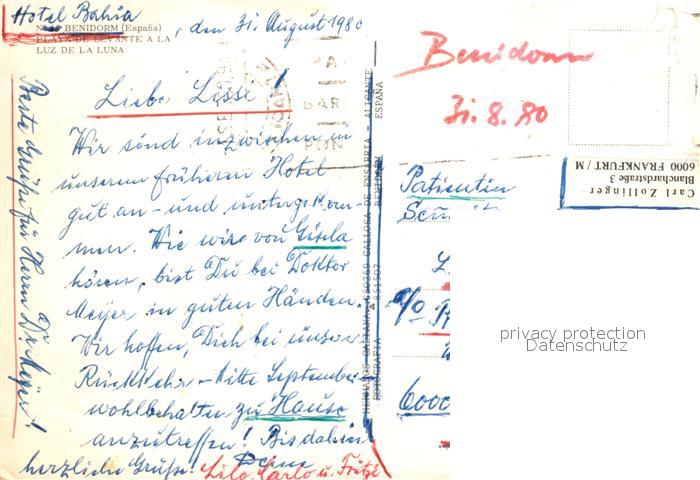 Hotel Bahia
BENIDORM (España)
PLAYA DE LEVANTE A LA
LUZ DE LA LUNA
, den 31. August 1980
Liebe Lisse!
Wir sind inzwischen in
unserem früheren Hotel
gut an- und untergekom-
men. Wie wir von Gisela
hören, bist Du bei Doktor
Meyer in guten Händen.
Wir hoffen, Dich bei unserer
Rückkehr - Mitte September
wohlbehalten zu Hause
anzutreffen! Bis dahin
herzliche Grüße: Deine
Lilo, Carlo u. Fritz
Beste Grüße für Herrn Dr. Meyer!
Benidorm
31.8.80
Carl Zollinger
Blanchardstraße 3
6000 FRANKFURT / M
Patientin
c/o
6000
privacy protection
Datenschutz